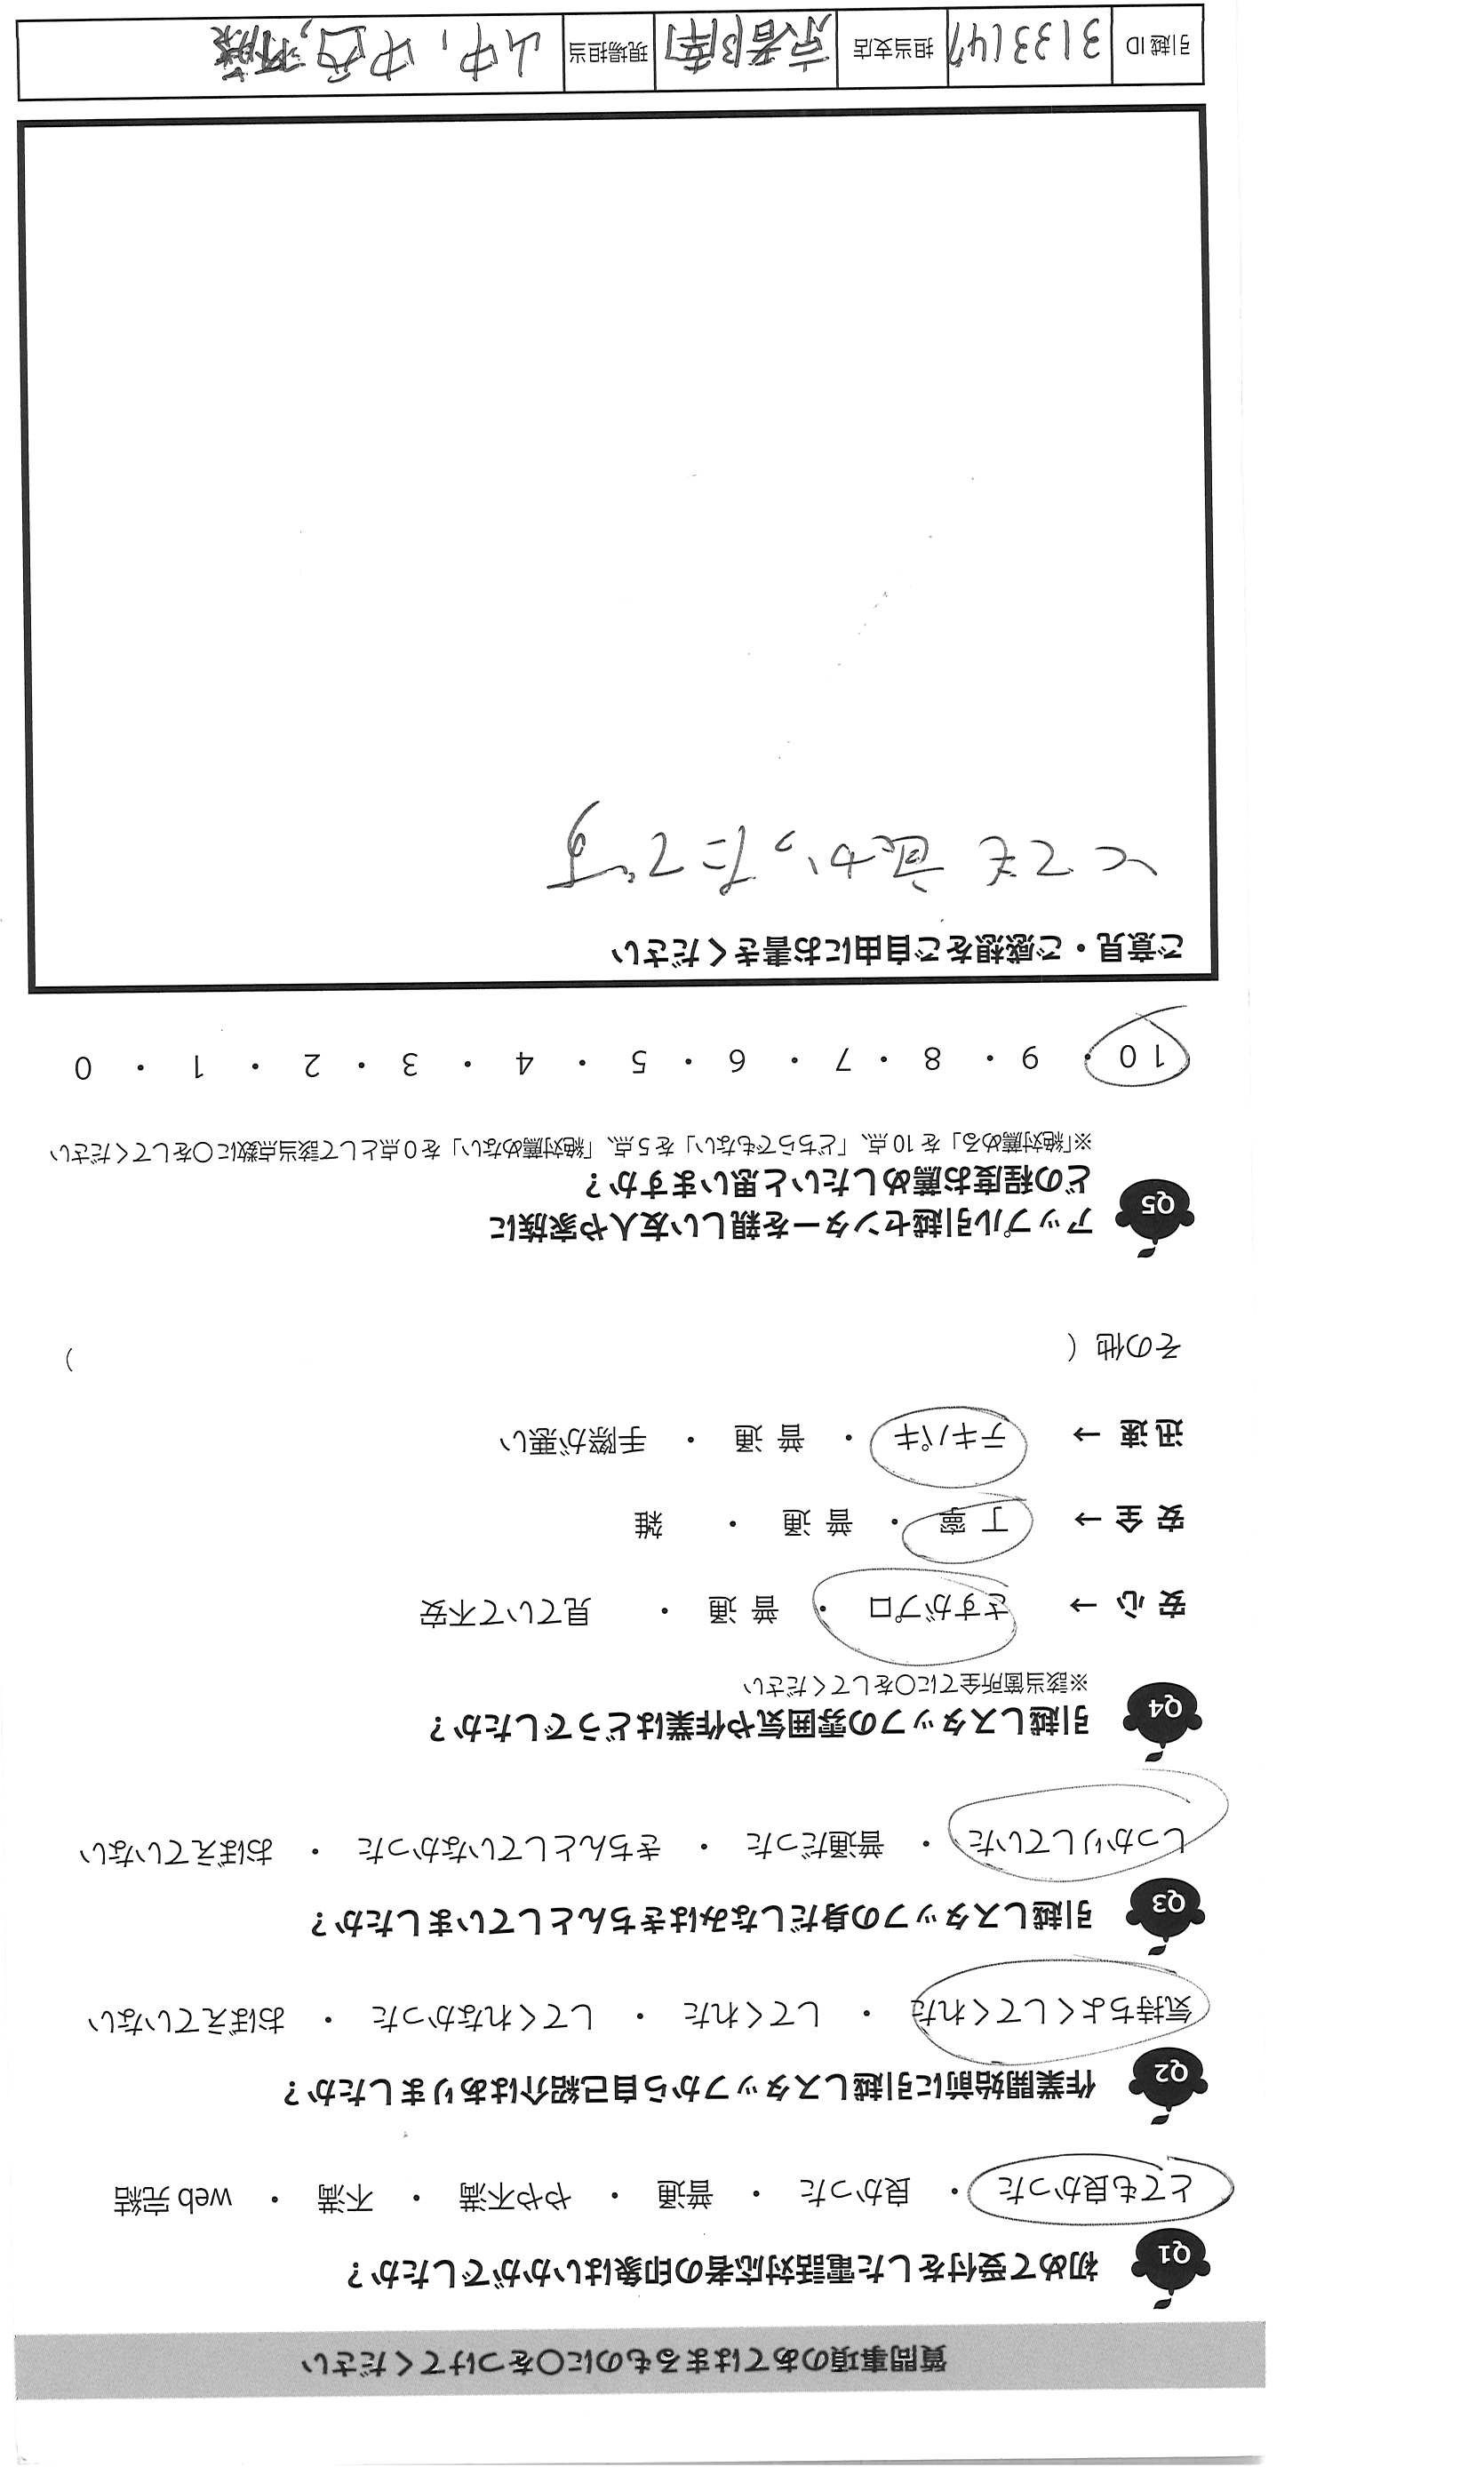 質問事項のあてはまるものに○をつけてください
Q1 初めて受付をした電話対応者の印象はいかがでしたか？
とても良かった ・ 良かった ・ 普通 ・ やや不満 ・ 不満 ・ web 完結
Q2 作業開始前に引越しスタッフから自己紹介はありましたか？
気持ちよくしてくれた ・ してくれた ・ してくれなかった ・ おぼえていない
Q3 引越しスタッフの身だしなみはきちんとしていましたか？
しっかりしていた ・ 普通だった ・ きちんとしていなかった ・ おぼえていない
Q4 引越しスタッフの雰囲気や作業はどうでしたか？
※該当箇所全てに○をしてください
安 心 → さすがプロ ・ 普 通 ・ 見ていて不安
安 全 → 丁 寧 ・ 普 通 ・ 雑
迅 速 → テキパキ ・ 普 通 ・ 手際が悪い
その他（ ）
Q5 アップル引越センターを親しい友人や家族に
どの程度お薦めしたいと思いますか？
※「絶対薦める」を 10 点、「どちらでもない」を 5 点、「絶対薦めない」を 0 点として該当点数に○をしてください
10 ・ 9 ・ 8 ・ 7 ・ 6 ・ 5 ・ 4 ・ 3 ・ 2 ・ 1 ・ 0
ご意見・ご感想をご自由にお書きください
とても良かったです
引越 ID 3133147 担当支店 京都南 現場担当 山中, 中西,